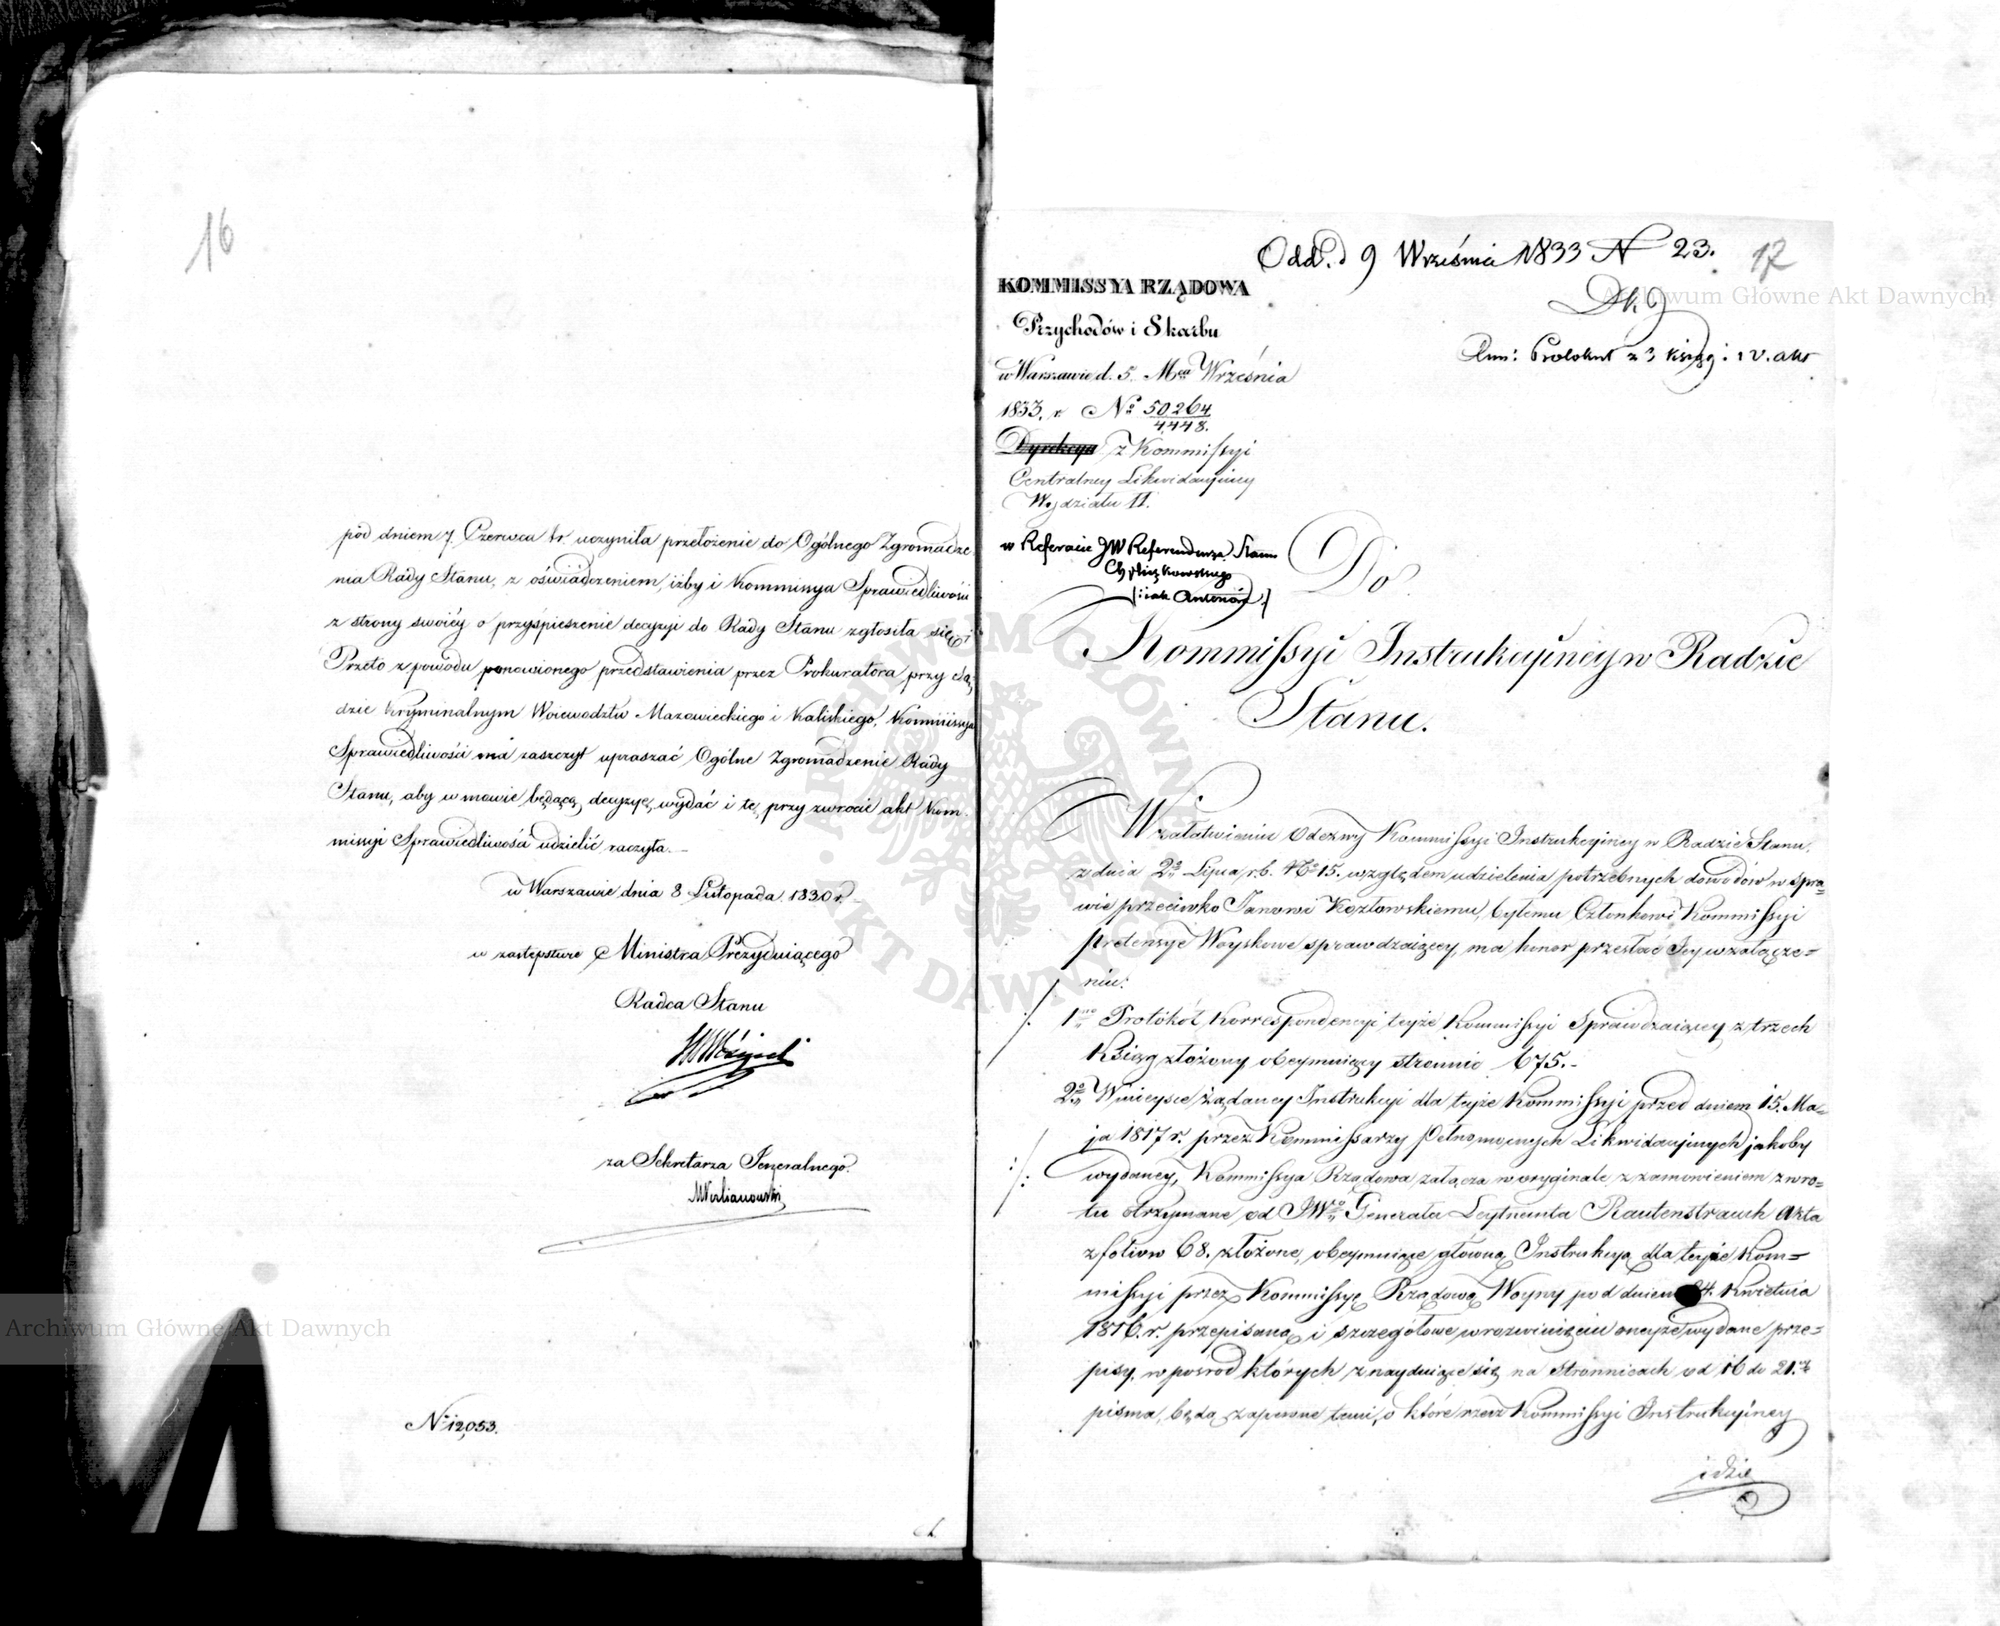 16
pód dniem 7. Czerwca br. uczyniła przełożenie do Ogólnego Zgromadze
nia Rady Stanu, z oświadczeniem, iżby i Kommissya Sprawiedliwości
z strony swoiéy o przyśpieszenie decyzyi do Rady Stanu zgłosiła się,
Przeto z powodu ponowionego przedstawienia przez Prokuratora przy Są,
dzie Kryminalnym Woiewództw Mazowieckiego i Kaliskiego, Kommissya
Sprawiedliwości ma zaszczyt upraszać Ogólne Zgromadzenie Rady
Stanu, aby w mowie będącą decyzyę wydać i tę przy zwrocie akt Kom-
missyi Sprawiedliwości udzielić raczyła. –
w Warszawie dnia 8 Listopada 1830 r.
w zastępstwie Ministra Prezyduiącego
Radca Stanu
za Sekretarza Jeneralnego.
N° 12,053.
Odd. d 9 Września 1833 N 23.
17
KOMMISSYA RZĄDOWA
Przychodów i Skarbu
w Warszawie d. 5. Mca Września
1833. r. No 50264
4,448.
Dyrekcya z Kommissyi
Centralney Likwidacyiney
Wydziału II.
Ann: Protokuł z 3 Ksiąg: i V. akt
w Referacie JW Referendarza Stanu
[:iak Antoni:]
Do
Kommissyi Instrukcyiney w Radzie
Stanu.
W załatwieniu Odezwy Kommissyi Instrukcyiney w Radzie Stanu,
z dnia 2o Lipca r.b. No 15. względem udzielenia potrzebnych dowodów w spra=
wie przeciwko Janowi Kozłowskiemu, byłemu Członkowi Kommissyi
pretensye Woyskowe sprawdzaiącey, ma honor przesłać Jey w załącze=
niu:
1mo Protókół Korrespondencyi teyże Kommissyi Sprawdzaiącey z trzech
Ksiąg złożony, obeymuiący stronnic 675. –
2o W mieysce żądaney Instrukcyi dla teyże Kommissyi przed dniem 15. Ma=
ja 1817 r. przez Kommissarzy Pełnomocnych Likwidacyinych jakoby
wydaney, Kommissya Rządowa załącza w oryginale z zamówieniem zwro=
tu otrzymane od JWo Generała Leytnanta Rautenstrauch Akta
z foliow 68. złożone, obeymuiące główną Instrukcyą dla teyże Kom=
missyi przez Kommissyę Rządową Woyny pod dniem 24. Kwietnia
1816. r. przepisaną i szczegółowe w rozwinięciu oneyże wydane prze=
pisy, w posród których znayduiące się na Stronnicach od 16 do 21.
pisma, będą zapewne temi, o które rzecz Kommissyi Instrukcyiney
idzie
Archiwum Główne Akt Dawnych
Archiwum Główne Akt Dawnych
ARCHIWUM GŁÓWNE AKT DAWNYCH